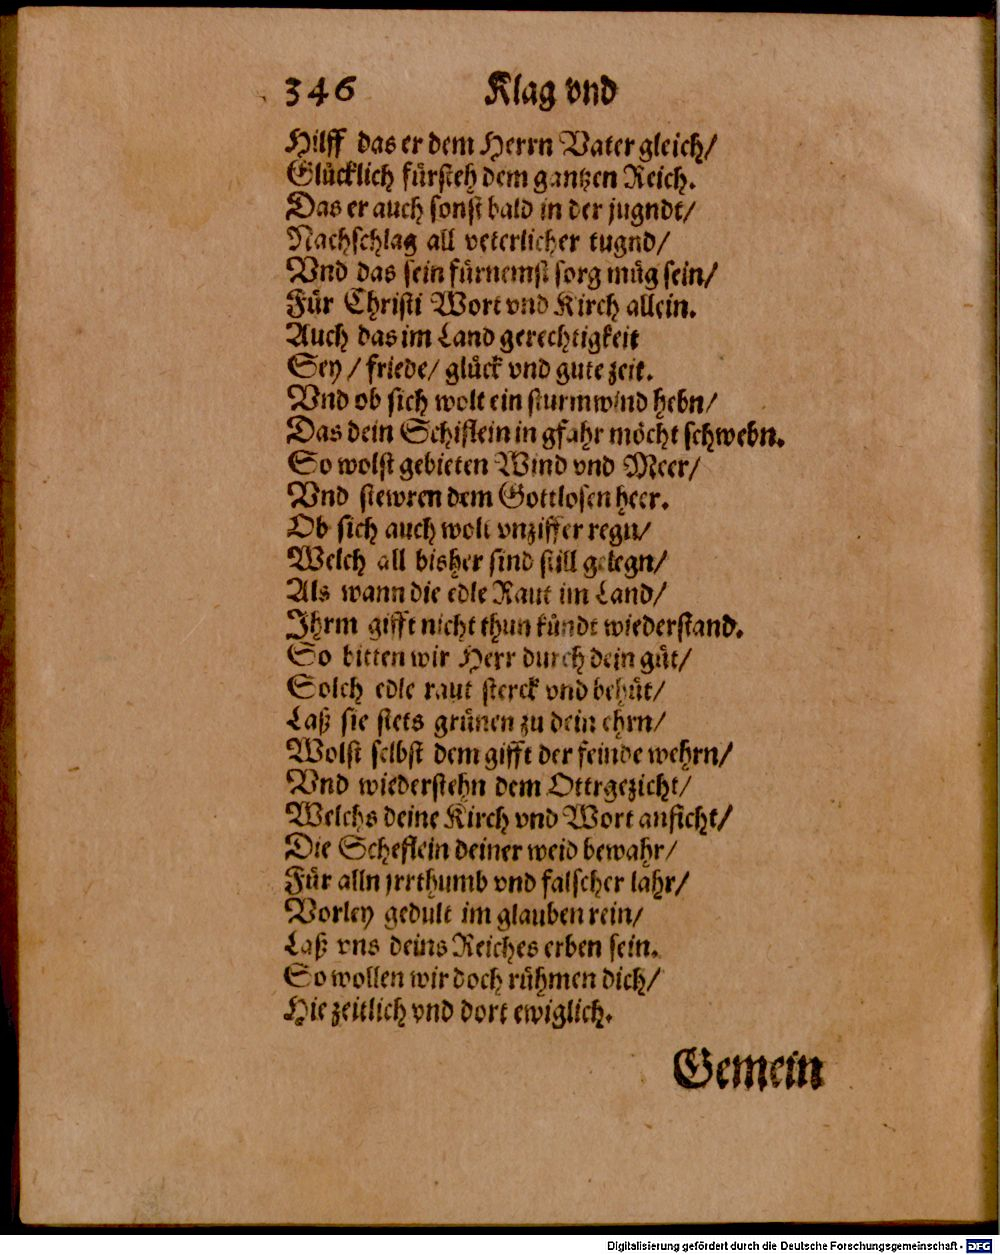 346 Klag vnd
Hilff das er dem Herrn Vater gleich/
Glücklich fürsteh dem gantzen Reich.
Das er auch sonst bald in der jugndt/
Nachschlag all veterlicher tugnd/
Vnd das sein fürnemst sorg müg sein/
Für Christi Wort vnd Kirch allein.
Auch das im Land gerechtigkeit
Sey/ friede/ glück vnd gute zeit.
Vnd ob sich wolt ein sturmwind hebn/
Das dein Schiflein in gfahr möcht schwebn.
So wolst gebieten Wind vnd Meer/
Vnd stewren dem Gottlosen heer.
Ob sich auch wolt vnziffer regn/
Welch all bisher sind still gelegn/
Als wann die edle Raut im Land/
Ihrm gifft nicht thun kündt wiederstand.
So bitten wir Herr durch dein güt/
Solch edle raut sterck vnd behüt/
Laß sie stets grünen zu dein ehrn/
Wolst selbst dem gifft der feinde wehrn/
Vnd wiederstehn dem Ottrgezicht/
Welchs deine Kirch vnd Wort anficht/
Die Scheflein deiner weid bewahr/
Für alln jrrthumb vnd falscher lahr/
Vorley gedult im glauben rein/
Laß vns deins Reiches erben sein.
So wollen wir doch rühmen dich/
Hie zeitlich vnd dort ewiglich.
Gemein
Digitalisierung gefördert durch die Deutsche Forschungsgemeinschaft - DFG